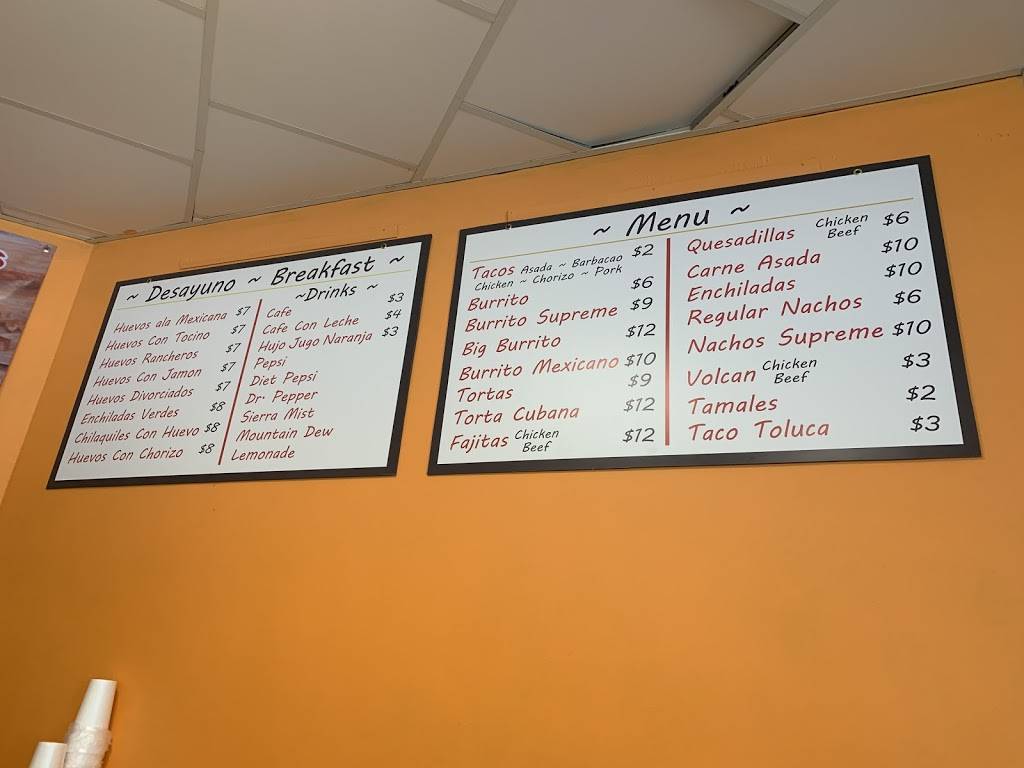 ~ Desayuno ~ Breakfast ~
Huevos ala Mexicana $7
Huevos Con Tocino $7
Huevos Rancheros $7
Huevos Con Jamon $7
Huevos Divorciados $7
Enchiladas Verdes $8
Chilaquiles Con Huevo $8
Huevos Con Chorizo $8
~Drinks ~
Cafe $3
Cafe Con Leche $4
Hujo Jugo Naranja $3
Pepsi
Diet Pepsi
Dr. Pepper
Sierra Mist
Mountain Dew
Lemonade
~ Menu ~
Tacos Asada ~ Barbacao $2
Chicken ~ Chorizo ~ Pork
Burrito $6
Burrito Supreme $9
Big Burrito $12
Burrito Mexicano $10
Tortas $9
Torta Cubana $12
Fajitas Chicken $12
Beef
Quesadillas Chicken $6
Beef
Carne Asada $10
Enchiladas $10
Regular Nachos $6
Nachos Supreme $10
Volcan Chicken $3
Beef
Tamales $2
Taco Toluca $3